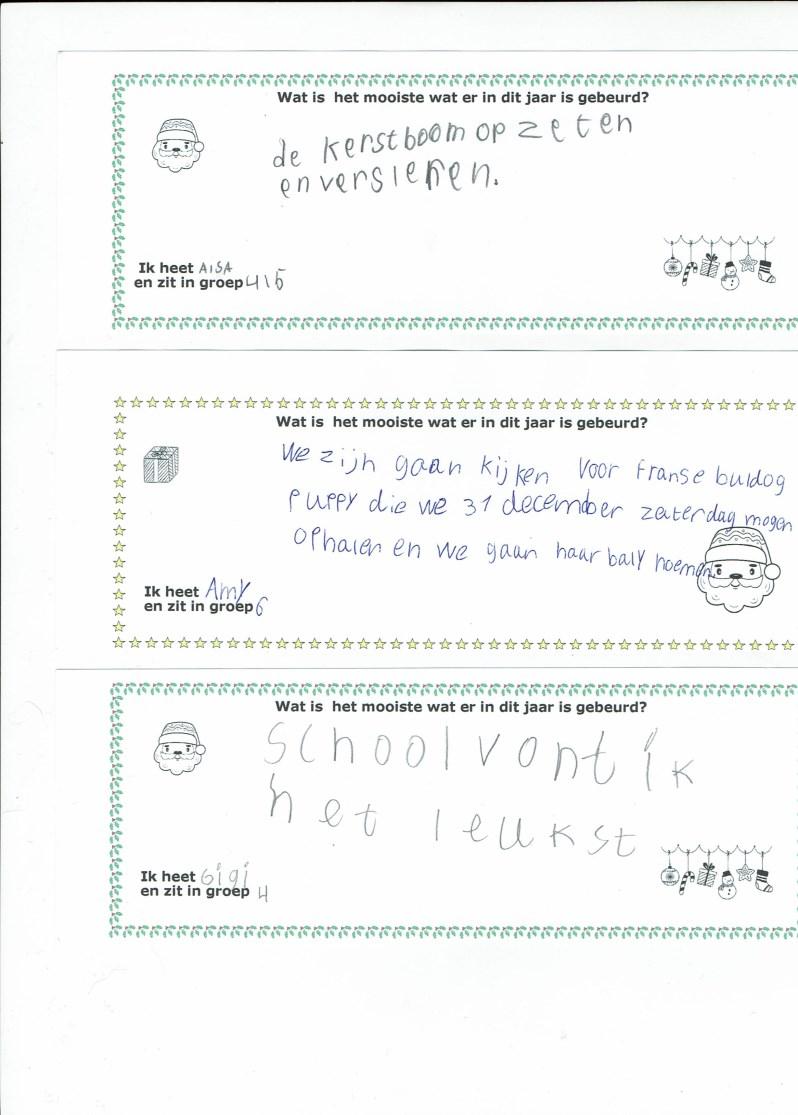 Wat is het mooiste wat er in dit jaar is gebeurd?
de kerstboom op zeten
en versieren.
Ik heet AISA
en zit in groep 415
Wat is het mooiste wat er in dit jaar is gebeurd?
We zijn gaan kijken voor franse buldog
puppy die we 31 december zaterdag mogen
ophalen en we gaan haar baly noemen.
Ik heet Amy
en zit in groep 6
Wat is het mooiste wat er in dit jaar is gebeurd?
school vont ik
het leukst
Ik heet Gigi
en zit in groep 4